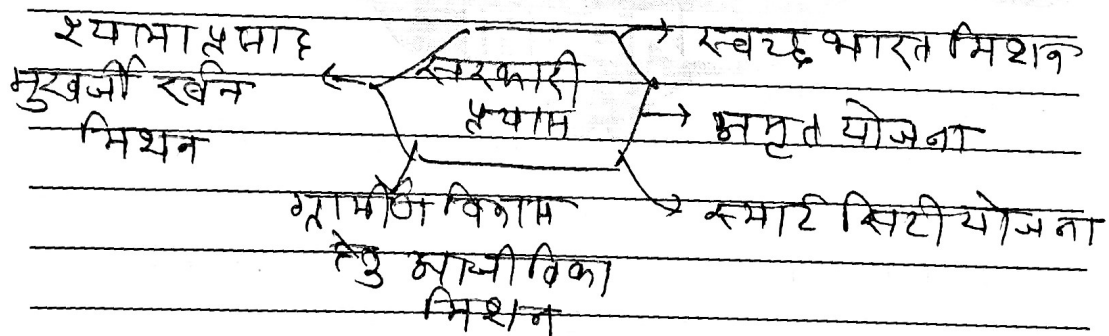 श्यामा प्रसाद
मुखर्जी रुर्बन
मिशन
सरकारी
प्रयास
स्वच्छ भारत मिशन
अमृत योजना
स्मार्ट सिटी योजना
ग्रामीण विकास
हेतु आजीविका
मिशन